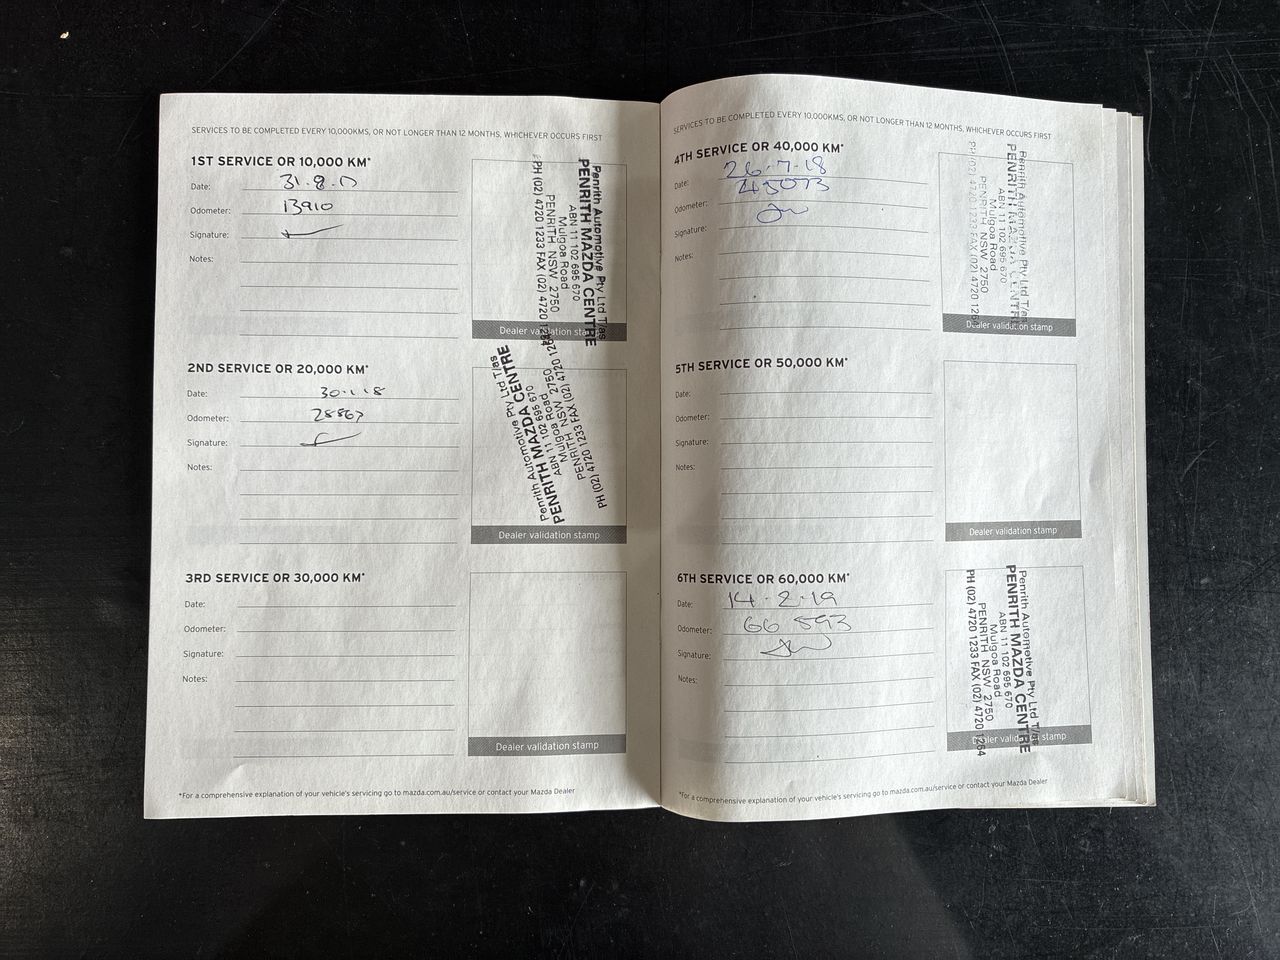 SERVICES TO BE COMPLETED EVERY 10,000KMS, OR NOT LONGER THAN 12 MONTHS, WHICHEVER OCCURS FIRST
1ST SERVICE OR 10,000 KM*
Date: 31.8.17
Odometer: 13910
Signature:
Notes:
Penrith Automotive Pty Ltd T/as
PENRITH MAZDA CENTRE
ABN 11 102 695 670
Mulgoa Road
PENRITH NSW 2750
PH (02) 4720 1233 FAX (02) 4720
Dealer validation stamp
2ND SERVICE OR 20,000 KM*
Date: 30.1.18
Odometer: 28867
Signature:
Notes:
Penrith Automotive Pty Ltd T/as
PENRITH MAZDA CENTRE
ABN 11 102 695 670
Mulgoa Road
PENRITH NSW 2750
PH (02) 4720 1233 FAX (02) 4720
Dealer validation stamp
3RD SERVICE OR 30,000 KM*
Date:
Odometer:
Signature:
Notes:
Dealer validation stamp
*For a comprehensive explanation of your vehicle's servicing go to mazda.com.au/service or contact your Mazda Dealer
SERVICES TO BE COMPLETED EVERY 10,000KMS, OR NOT LONGER THAN 12 MONTHS, WHICHEVER OCCURS FIRST
4TH SERVICE OR 40,000 KM*
26.7.18
Date: 45073
Odometer:
Signature:
Notes:
Penrith Automotive Pty Ltd T/as
PENRITH MAZDA CENTRE
ABN 11 102 695 670
Mulgoa Road
PENRITH NSW 2750
PH (02) 4720 1233 FAX (02) 4720 1264
Dealer validation stamp
5TH SERVICE OR 50,000 KM*
Date:
Odometer:
Signature:
Notes:
Dealer validation stamp
6TH SERVICE OR 60,000 KM*
Date: 14.2.19
Odometer: 66 593
Signature:
Notes:
Penrith Automotive Pty Ltd T/as
PENRITH MAZDA CENTRE
ABN 11 102 695 670
Mulgoa Road
PENRITH NSW 2750
PH (02) 4720 1233 FAX (02) 4720 1264
Dealer validation stamp
*For a comprehensive explanation of your vehicle's servicing go to mazda.com.au/service or contact your Mazda Dealer